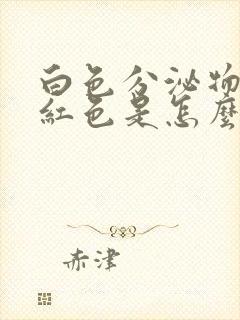 白色分泌物
紅色是怎麼
赤津